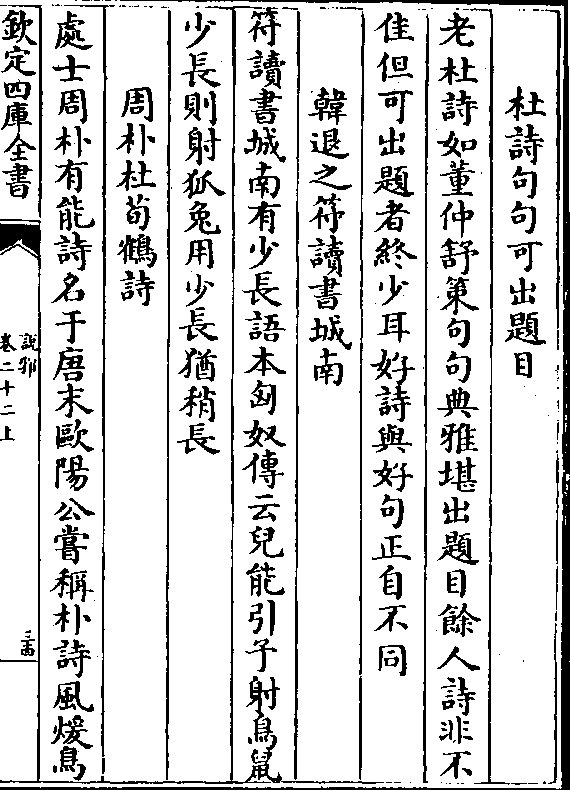 杜詩句句可出題目
老杜詩如董仲舒策句句典雅堪出題目餘人詩非不
佳但可出題者終少耳好詩與好句正自不同
韓退之符讀書城南
符讀書城南有少長語本匈奴傳云兒能引子射鳥鼠
少長則射狐兔用少長猶稍長
周朴杜荀鶴詩
處士周朴有能詩名于唐末歐陽公嘗稱朴詩風煖鳥
欽定四庫全書
說郛
卷二十二上
三百